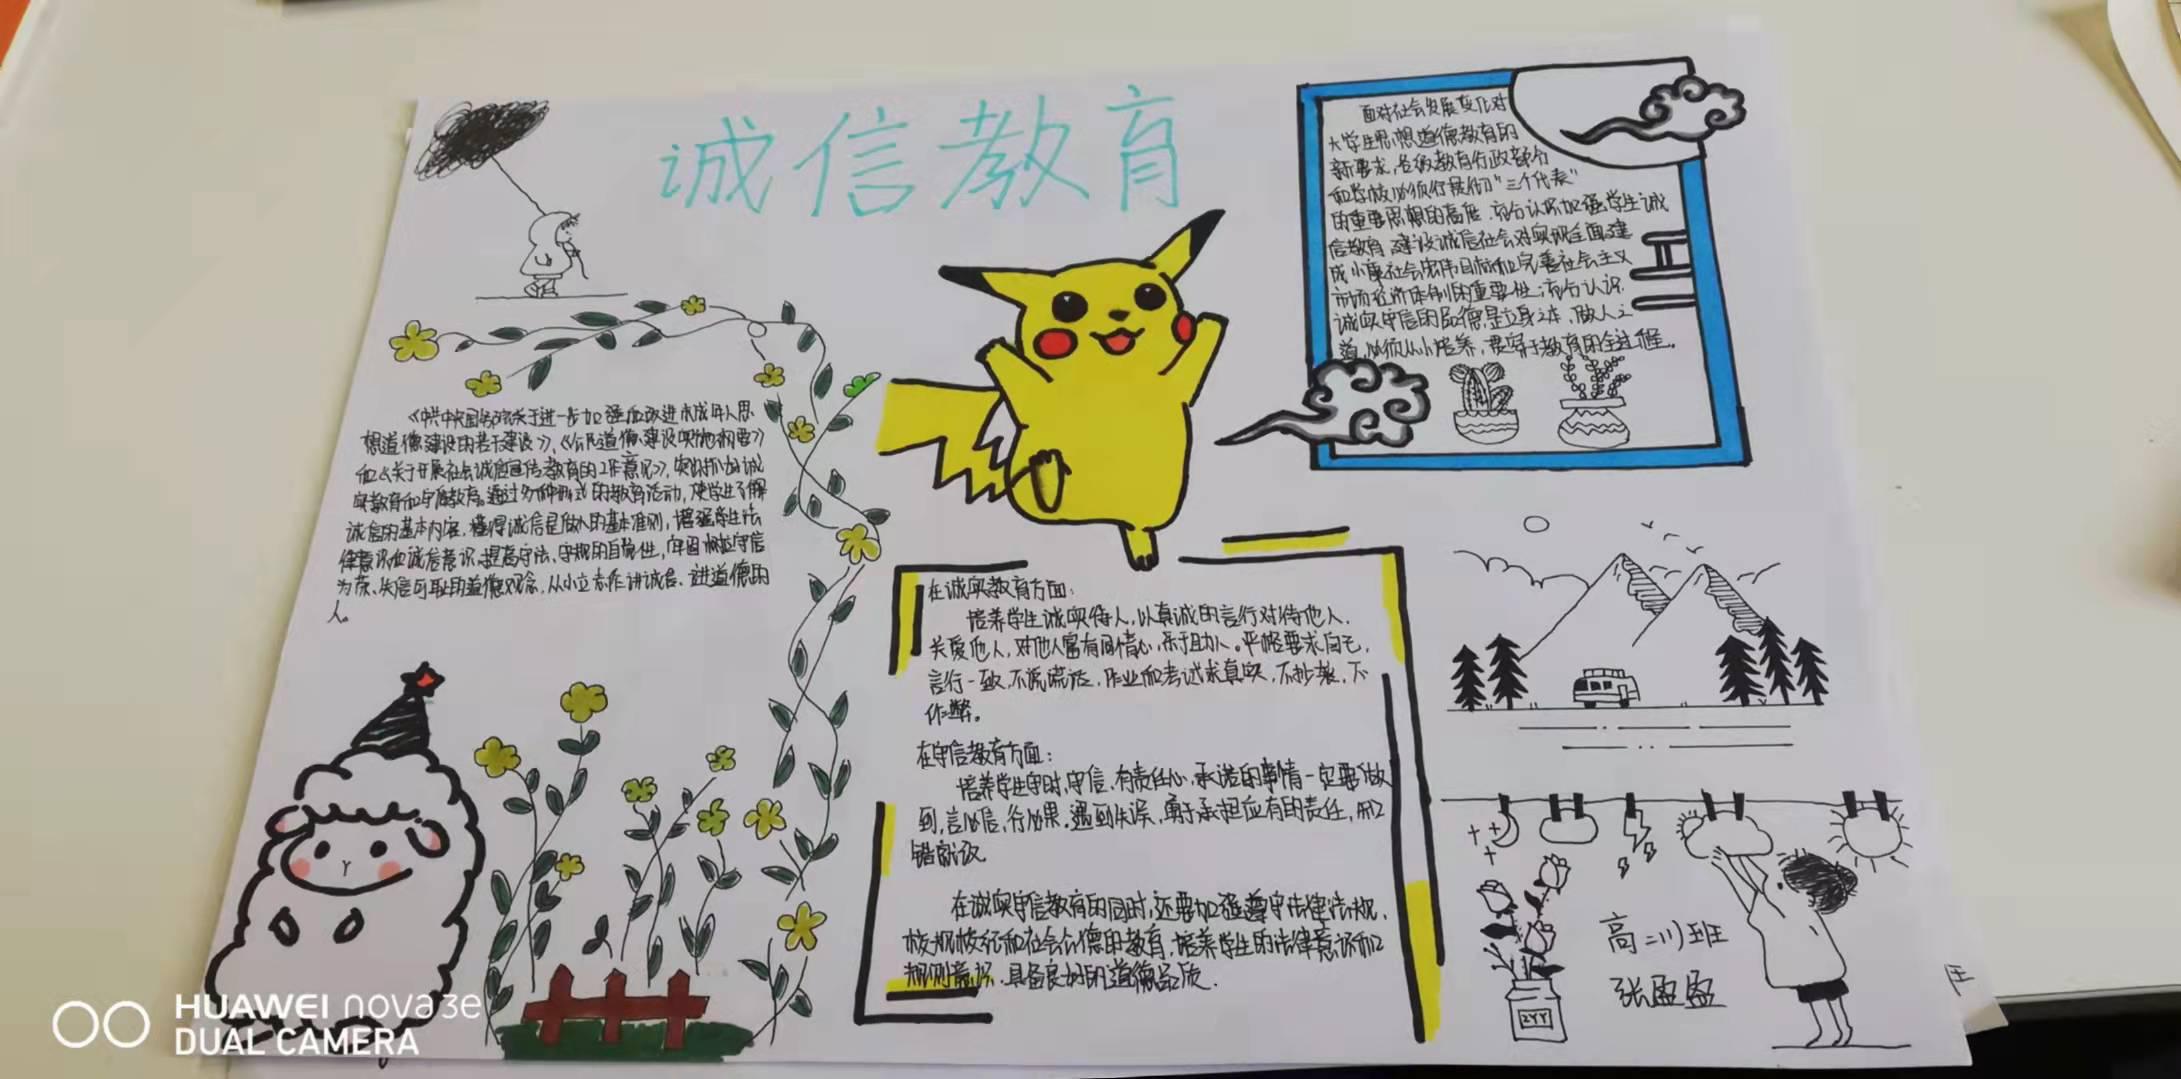 诚信教育
面对社会发展变化对
大学生思想道德教育的
新要求,各级教育行政部分
和学校必须行展彻“三个代表”
的重要思想的高度,充分认识加强学生诚
信教育,建设诚信社会对实现全面建
成小康社会宏伟目标和完善社会主义
市场经济体制的重要性;充分认识
诚实守信的品德是立身之本、做人之
道,必须从小培养,贯穿于教育的全过程。
《中共中央国务院关于进一步加强和改进未成年人思
想道德建设的若干建议》、《公民道德建设实施纲要》
和《关于开展社会诚信宣传教育的工作意见》,突出抓好诚
实教育和守信教育。通过多种形式的教育活动,使学生了解
诚信的基本内容,懂得诚信是做人的基本准则,增强学生法
律意识和诚信意识,提高守法、守规的自觉性,牢固树立守信
为荣、失信可耻的道德观念,从小立志作讲诚信、讲道德的
人。
在诚实教育方面:
培养学生诚实待人,以真诚的言行对待他人、
关爱他人,对他人富有同情心,乐于助人。严格要求自己,
言行一致,不说谎话,作业和考试求真实,不抄袭、不
作弊。
在守信教育方面:
培养学生守时、守信、有责任心,承诺的事情一定要做
到,言必信,行必果,遇到失误,勇于承担应有的责任,知
错就改
在诚实守信教育的同时,还要加强遵守法律法规、
校规校纪和社会公德的教育,培养学生的法律意识和
规则意识,具备良好的道德品质.
高二川班
张盈盈
ZYY
HUAWEI nova 3e
DUAL CAMERA